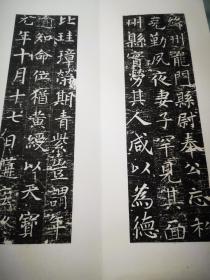 絳州龍門縣尉奉公忘私
恪勤夙夜妻子罕見其面
州縣賓勞其人咸以為德
比珪璋榮斯青紫豈謂年
過知命位猶黃綬以天寶
元年十月十七日薨